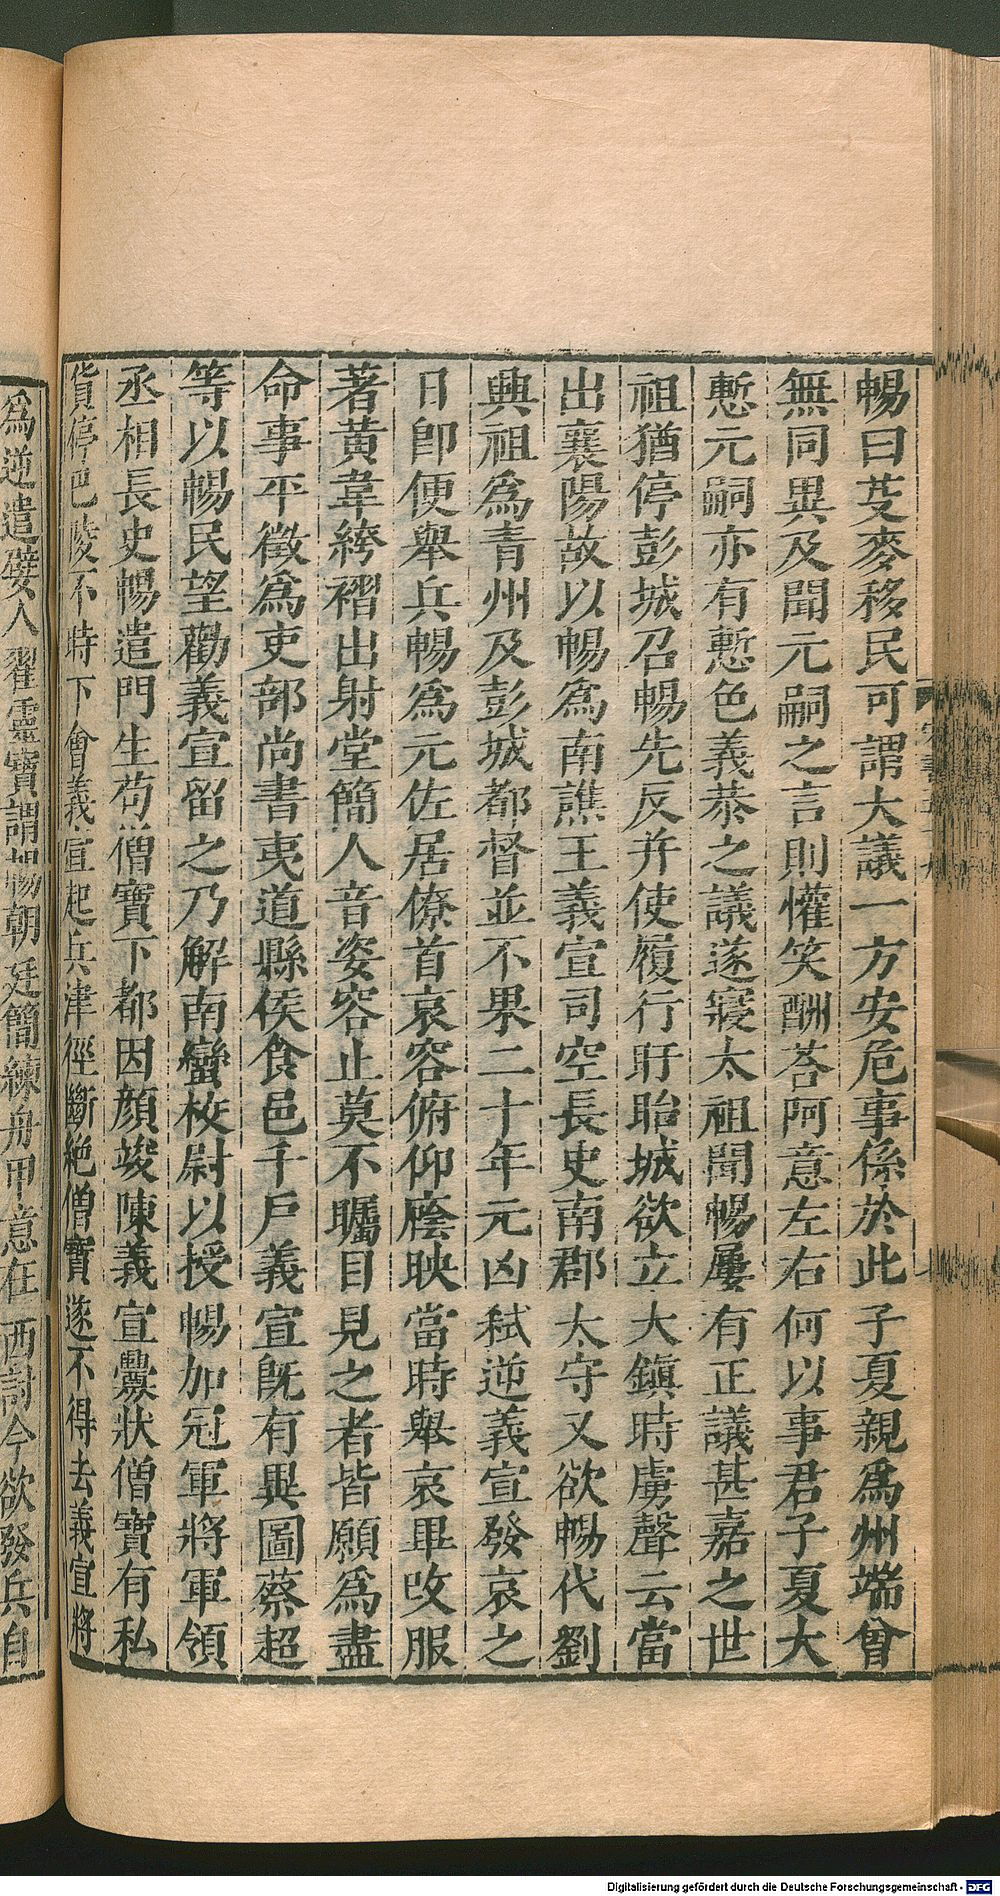 暢曰芆麥移民可謂大議一方安危事係於此子夏親爲州端曾
無同異及聞元嗣之言則懽笑酬荅阿意左右何以事君子夏大
慙元嗣亦有慙色義恭之議遂寢太祖聞暢屢有正議甚嘉之世
祖猶停彭城召暢先反并使履行盱眙城欲立大鎮時虜聲云當
出襄陽故以暢爲南譙王義宣司空長史南郡太守又欲暢代劉
興祖爲青州及彭城都督並不果二十年元凶弑逆義宣發哀之
日卽便舉兵暢爲元佐居僚首哀容俯仰廕映當時舉哀畢改服
著黃韋絝褶出射堂簡人音姿容止莫不矚目見之者皆願爲盡
命事平徵爲吏部尚書夷道縣侯食邑千戶義宣旣有異圖蔡超
等以暢民望勸義宣留之乃解南蠻校尉以授暢加冠軍將軍領
丞相長史暢遣門生荀僧寶下都因顏竣陳義宣釁狀僧寶有私
貨停巴陵不時下會義宣起兵津徑斷絕僧寶遂不得去義宣將
爲逆遣嬖人翟靈寶謂暢朝廷簡練舟甲意在西討今欲發兵自
Digitalisierung gefördert durch die Deutsche Forschungsgemeinschaft - DFG